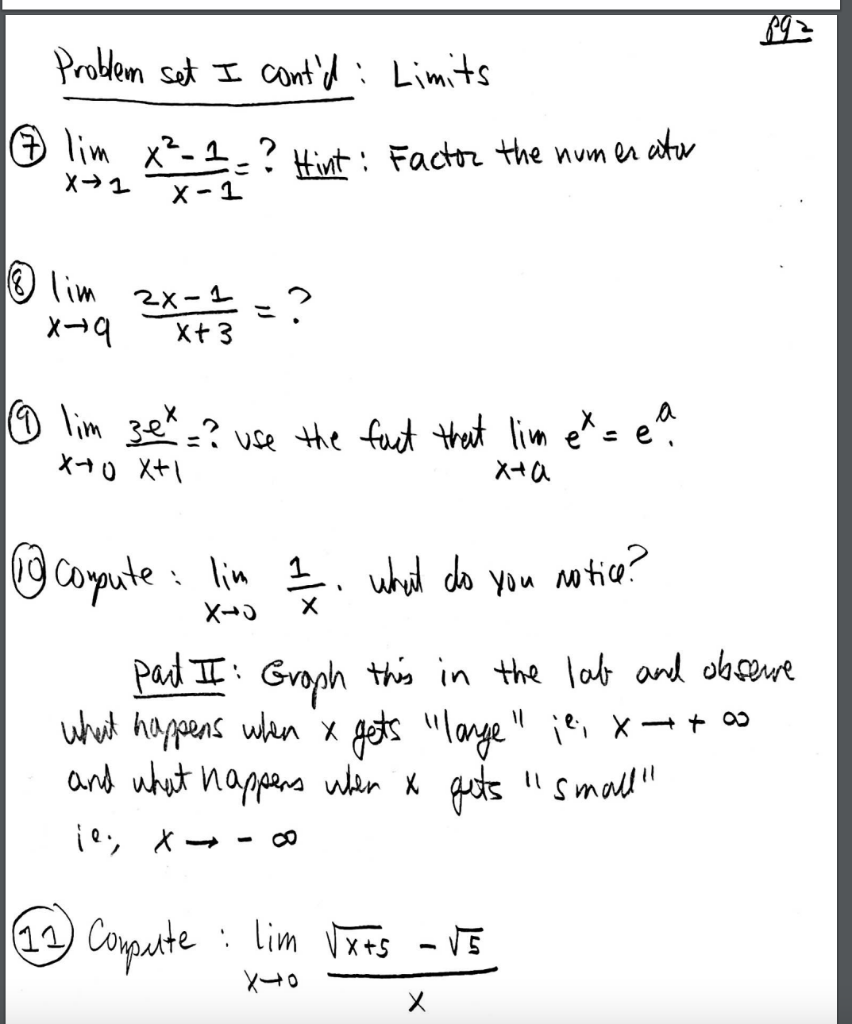 pg 2
Problem set I cont'd : Limits
⑦ lim x→1 (x²-1)/(x-1) = ? Hint : Factor the numerator
⑧ lim x→9 (2x-1)/(x+3) = ?
⑨ lim x→0 3eˣ/(x+1) = ? use the fact that lim x→a eˣ = eᵃ.
⑩ Compute : lim x→0 1/x . what do you notice?
Part II : Graph this in the lab and observe
what happens when x gets "large" ie, x → + ∞
and what happens when x gets "small"
ie, x → - ∞
⑪ Compute : lim x→0 (√x+5 - √5)/x